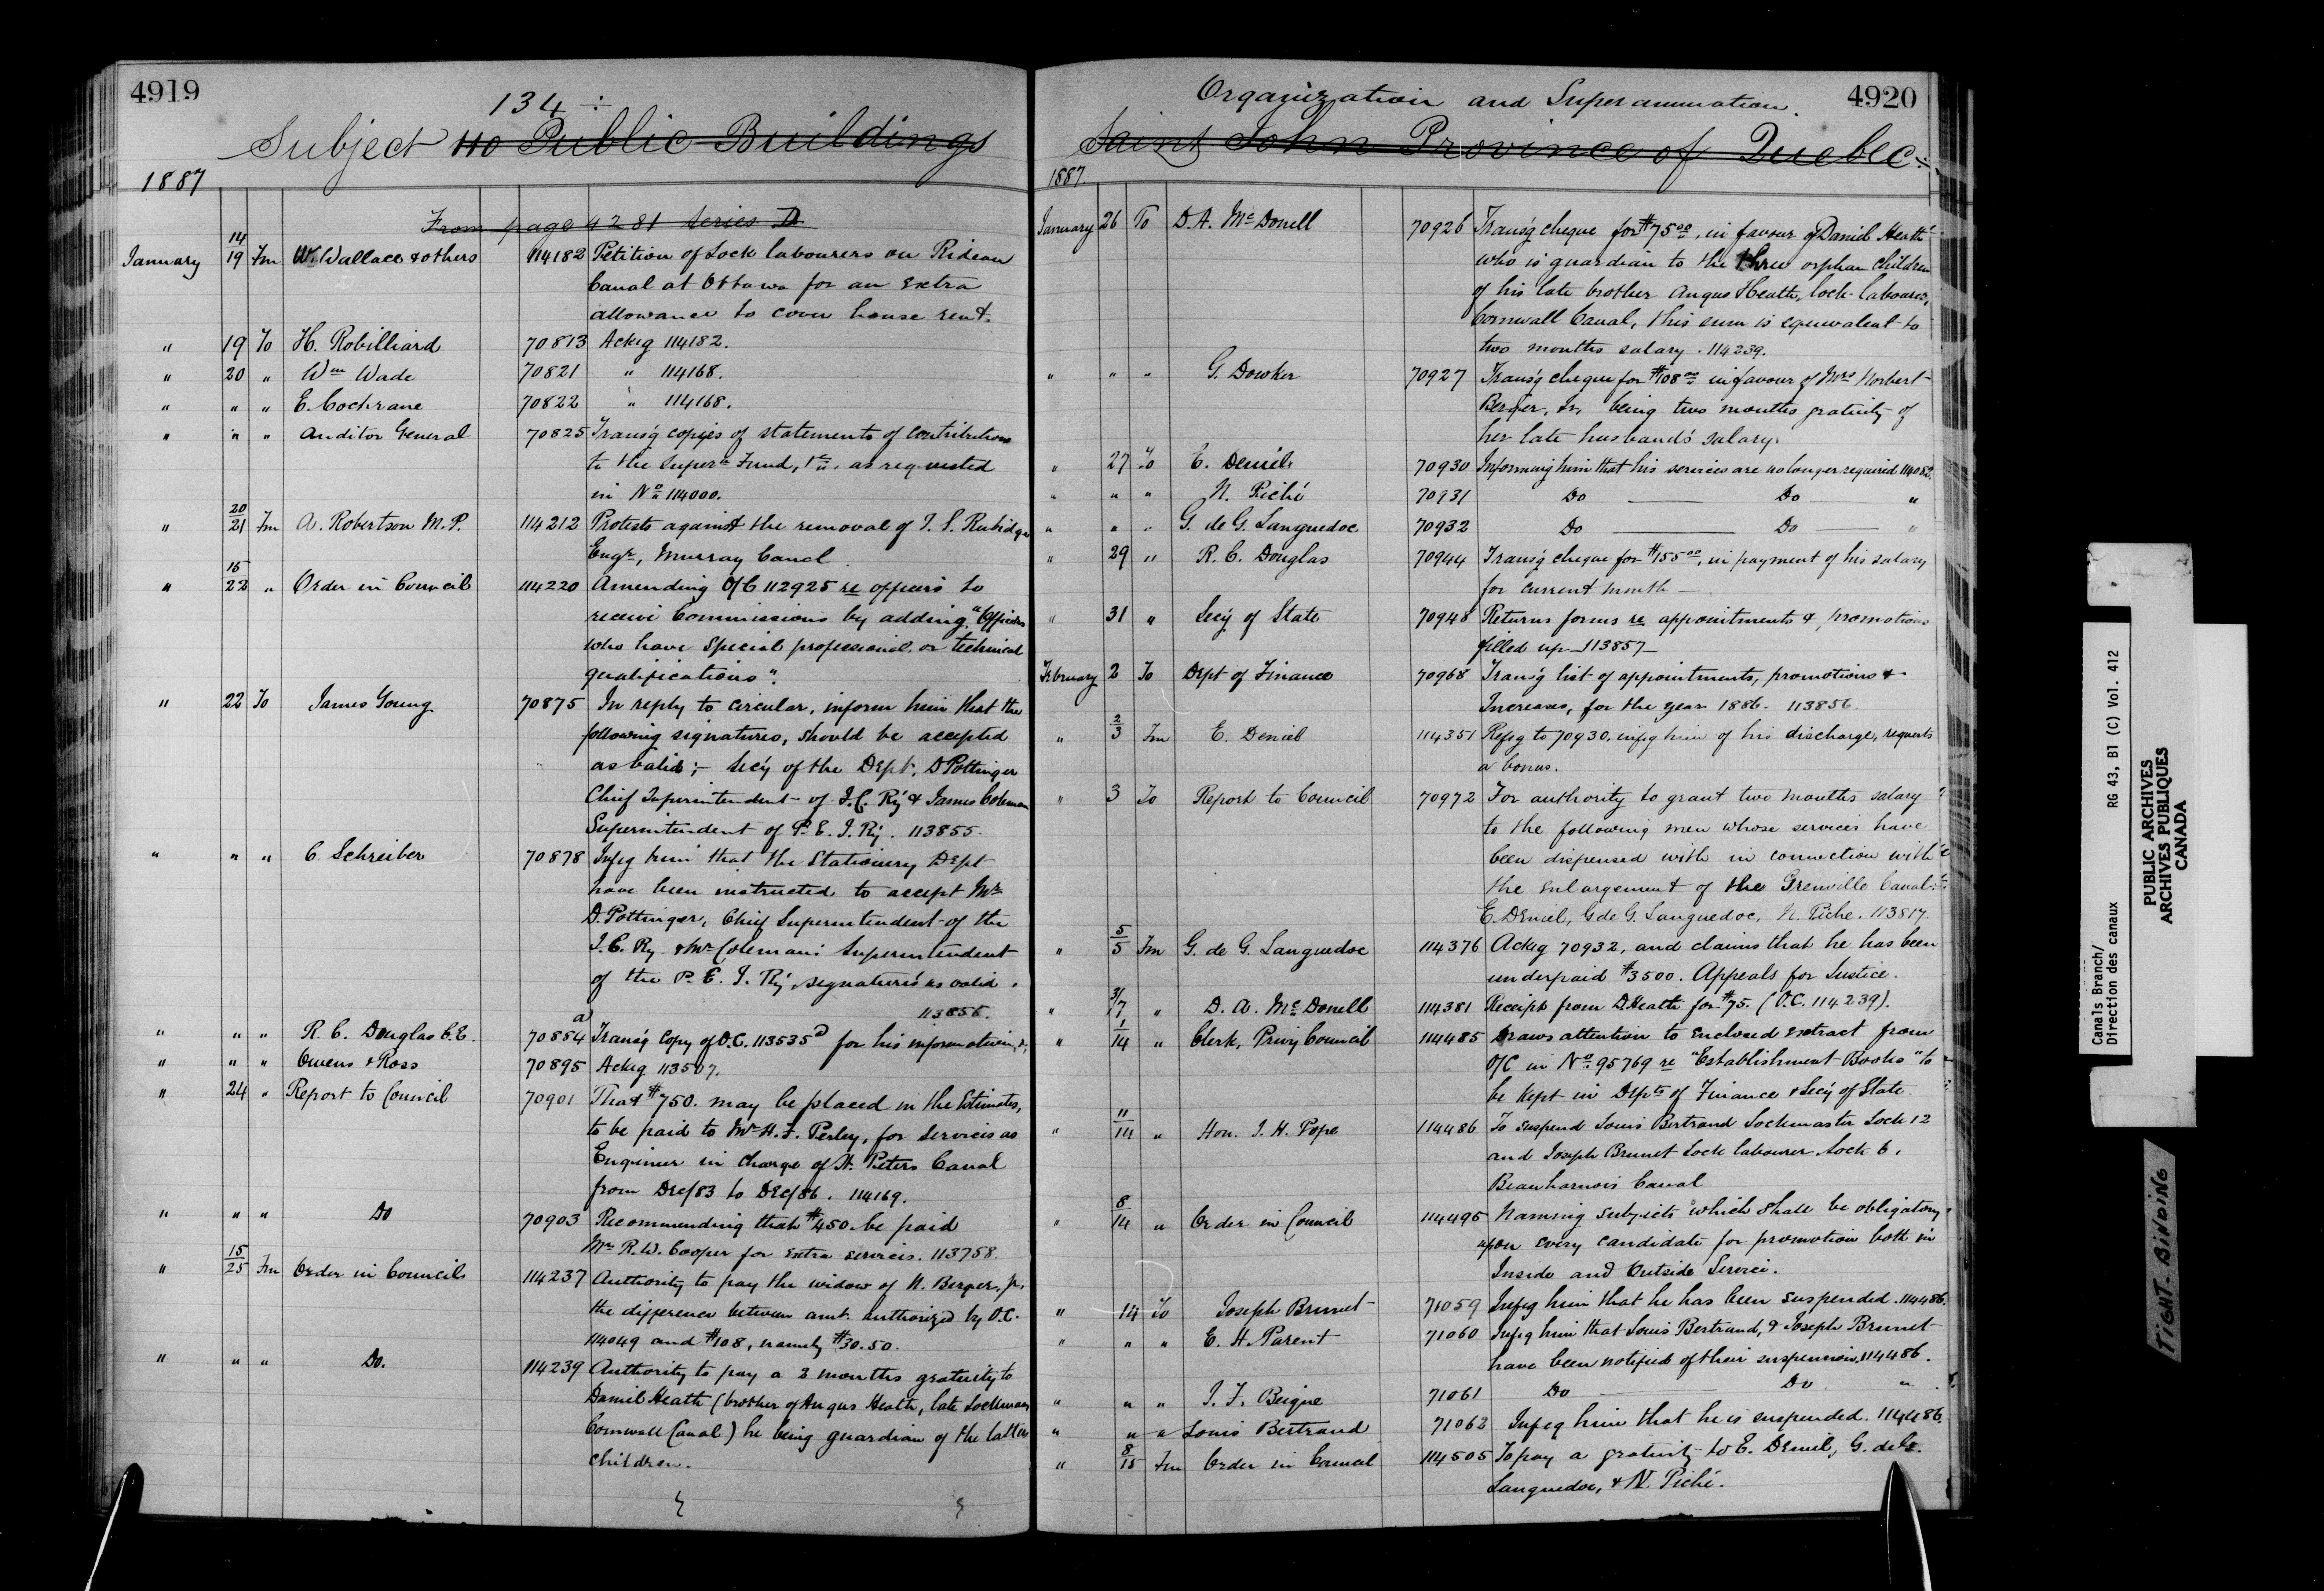 4919
134 ÷
Subject No Public Buildings
1887
From page 4281 Series D
January 14/19 Fm W. Wallace & others 114182 Petition of Lock labourers on Rideau
Canal at Ottawa for an extra
allowance to cover house rent.
" 19 To H. Robilliard 70813 Ackg 114182.
" 20 " Wm Wade 70821 " 114168.
" " " E. Cochrane 70822 " 114168.
" " " Auditor General 70825 Trans'g copies of statements of contributions
to the Super'n Fund, &c. as requested
in No 114000.
" 20/21 Fm A. Robertson M.P. 114212 Protests against the removal of T. S. Rubidge
Engr, Murray Canal
" 15/22 " Order in Council 114220 Amending O/C 112925 re officers to
receive Commissions by adding "Officers
who have special professional or technical
qualifications".
" 22 To James Young 70875 In reply to circular, inform him that the
following signatures, should be accepted
as valid; - Sec'y of the Dept, D Pottinger
Chief Superintendent of I.C. Ry & James Coleman
Superintendent of P. E. I. Ry. 113855.
" " " C. Schreiber 70878 Infg him that the Stationery Dept
have been instructed to accept Mr
D. Pottinger, Chief Superintendent of the
I.C. Ry & Mr Coleman's Superintendent
of the P. E. I. Ry, signatures as valid.
113856.
" " " R. C. Douglas C.E. 70884 Trans'g copy of O.C. 113535 D for his information,
" " " Owens & Ross 70895 Ackg 113507.
" 24 " Report to Council 70901 That $750. may be placed in the Estimates,
to be paid to Mr H. F. Perley, for services as
Engineer in charge of St. Peters Canal
from Dec/83 to Dec/86. 114169.
" " " Do 70903 Recommending that $450. be paid
Mr R. W. Cooper for extra services. 113758.
" 15/25 Fm Order in Councils 114237 Authority to pay the widow of N. Berger, Jr,
the difference between amt. authorized by O.C.
114049 and $108, namely $30.50.
" " " Do. 114239 Authority to pay a 2 months gratuity to
Daniel Heath (brother of Angus Heath, late Lockman
Cornwall Canal) he being guardian of the latter
children.
Organization and Superannuation. 4920
Saint John Province of Quebec ÷
1887.
January 26 To D. A. McDonell 70926 Trans'g cheque for $75.00, in favour of Daniel Heath
who is guardian to the three orphan children
of his late brother Angus Heath, lock-labourer,
Cornwall Canal, this sum is equivalent to
two months salary. 114239.
" " " G. Dowker 70927 Trans'g cheque for $108.00 in favour of Mrs Norbert
Berger, Jr, being two months gratuity of
her late husband's salary.
" 27 To E. Deniel 70930 Informing him that his services are no longer required 114082.
" " " N. Piché 70931 Do — Do "
" " " G. de G. Languedoc 70932 Do — Do — "
" 29 " R. C. Douglas 70944 Trans'g cheque for $155.00, in payment of his salary
for current month —
" 31 " Sec'y of State 70948 Returns forms re appointments & promotions
filled up 113857
February 2 To Dept of Finance 70968 Trans'g list of appointments, promotions &
Increases, for the year 1886. 113856
" 2/3 Fm E. Deniel 114351 Refg to 70930, infg him of his discharge, requests
a bonus.
" 3 To Report to Council 70972 For authority to grant two months salary
to the following men whose services have
been dispensed with in connection with
the enlargement of the Grenville Canal.
E. Deniel, G de G. Languedoc, N. Piche. 113817.
" 5/5 Fm G. de G. Languedoc 114376 Ackg 70932, and claims that he has been
underpaid $3500. Appeals for Justice.
" 31/7 " D. A. McDonell 114381 Receipt from D. Heath for $75. (O.C. 114239).
" 1/14 " Clerk, Privy Council 114485 Draws attention to enclosed extract from
O/C in No 95769 re "Establishment Books" to
be kept in Depts of Finance & Sec'y of State.
" 11/14 " Hon. J. H. Pope 114486 To suspend Louis Bertrand Lockmaster Lock 12
and Joseph Brunet Lock labourer Lock 6,
Beauharnois Canal
" 8/14 " Order in Council 114495 Naming subjects which shall be obligatory
upon every candidate for promotion both in
Inside and Outside Service.
" 14 To Joseph Brunet 71059 Infg him that he has been suspended. 114486.
" " " E. H. Parent 71060 Infg him that Louis Bertrand, & Joseph Brunet
have been notified of their suspension, 114486.
" " " J. F. Beique 71061 Do — Do. "
" " " Louis Bertrand 71062 Infg him that he is suspended. 114486.
" 8/15 Fm Order in Council 114505 To pay a gratuity to E. Deniel, G. de G.
Languedoc, & N. Piché.
Canals Branch/
Direction des canaux RG 43, B1 (C) Vol. 412
PUBLIC ARCHIVES
ARCHIVES PUBLIQUES
CANADA
TIGHT BINDING